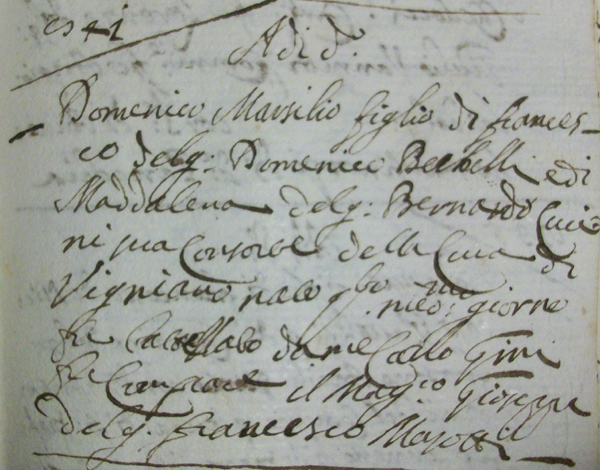 Adi d.
Domenico Marsilio figlio di frances-
co del q: Domenico Bechelli e di
Maddalena del q: Bernardo
ni sua Consorte della Cura di
Vignano nato giorno
fu battezzato da me Carlo Gini
fu Compare il Mag.co Giuseppe
del q. francesco